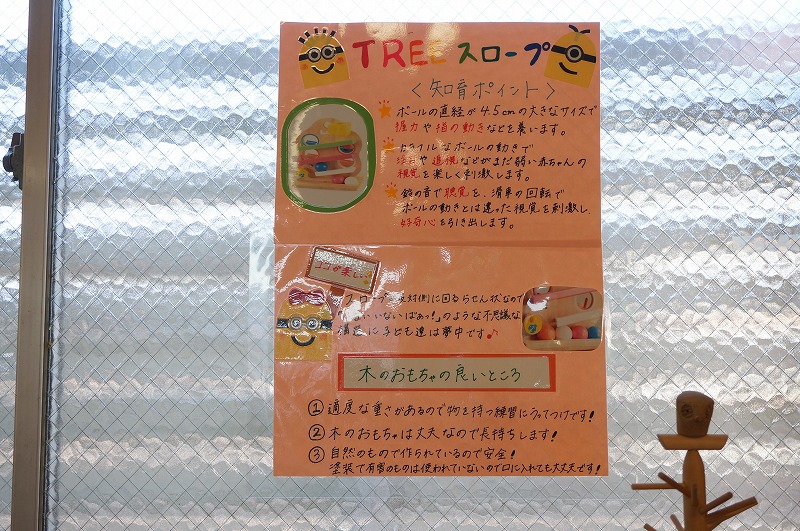 TREE スロープ
〈知育ポイント〉
ボールの直径が4.5cmの大きなサイズで
握力や指の動きなどを養います。
なボールの動きで
や追視などがまだ弱い赤ちゃんの
視覚を楽しく刺激します。
鈴の音で聴覚を、滑車の回転で
ボールの動きとは違った視覚を刺激し、
好奇心を引き出します。
ココが楽しい
スロープ 反対側に回るらせん状なので
いないばあっ!」のような不思議な
構造に子ども達は夢中です♪
木のおもちゃの良いところ
① 適度な重さがあるので物を持つ練習にうってつけです!
② 木のおもちゃは丈夫なので長持ちします!
③ 自然のもので作られているので安全!
塗装で有害のものは使われていないので口に入れても大丈夫です!